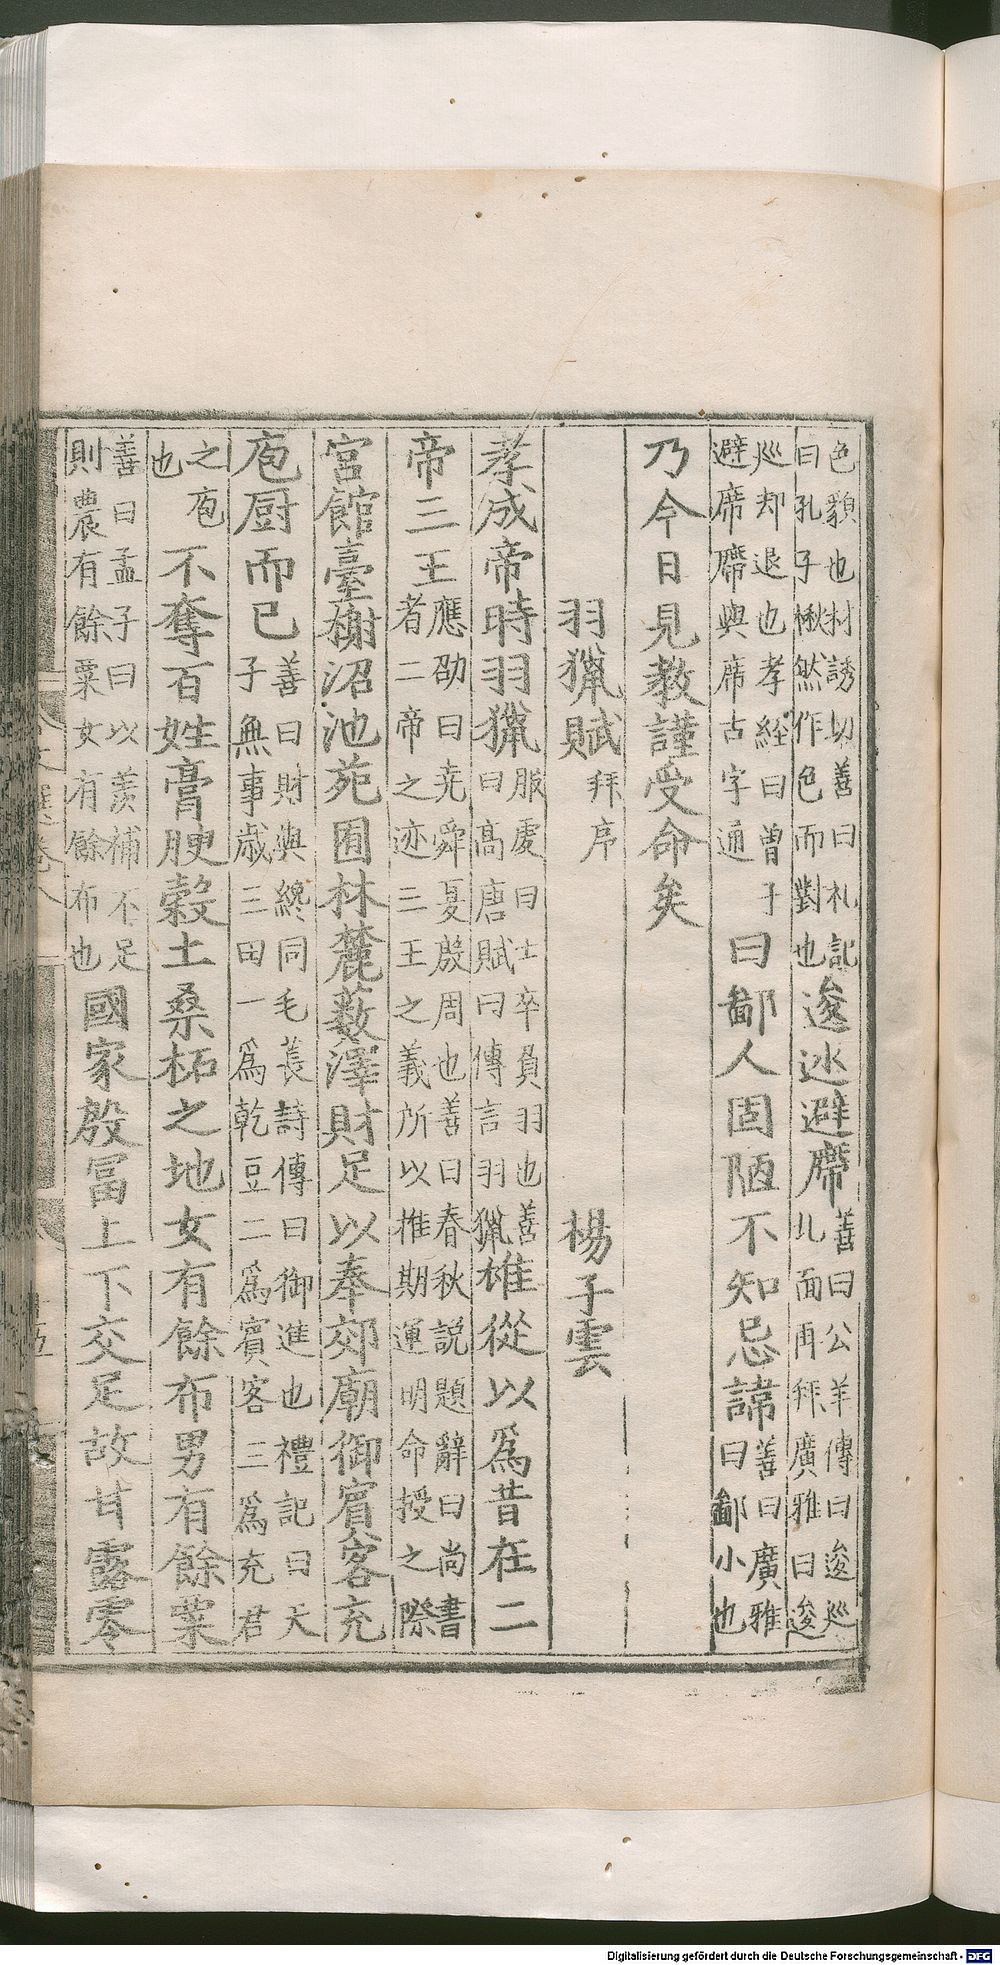 色貌也村誘切善曰礼記
曰孔子愀然作色而對也
逡巡避席
善曰公羊傳曰逡巡
北面再拜廣雅曰逡
巡却退也孝經曰曾子
避席廗與席古字通
曰鄙人固陋不知忌諱
善曰廣雅
曰鄙小也
乃今日見教謹受命矣
羽獵賦 拜序 楊子雲
孝成帝時羽獵
服虔曰士卒負羽也善
曰高唐賦曰傳言羽獵
雄從以爲昔在二
帝三王
應劭曰尭舜夏殷周也善曰春秋說題辭曰尚書
者二帝之迹三王之義所以推期運明命授之際
宮館臺榭沼池苑囿林麓藪澤財足以奉郊廟御賓客充
庖厨而已
善曰財與纔同毛萇詩傳曰御進也禮記曰天
子無事歲三田一爲乾豆二爲賓客三爲充君
之庖
也
不奪百姓膏腴穀土桑柘之地女有餘布男有餘粟
善曰孟子曰以羨補不足
則農有餘粟女有餘布也
國家殷冨上下交足故甘露零
Digitalisierung gefördert durch die Deutsche Forschungsgemeinschaft - DFG